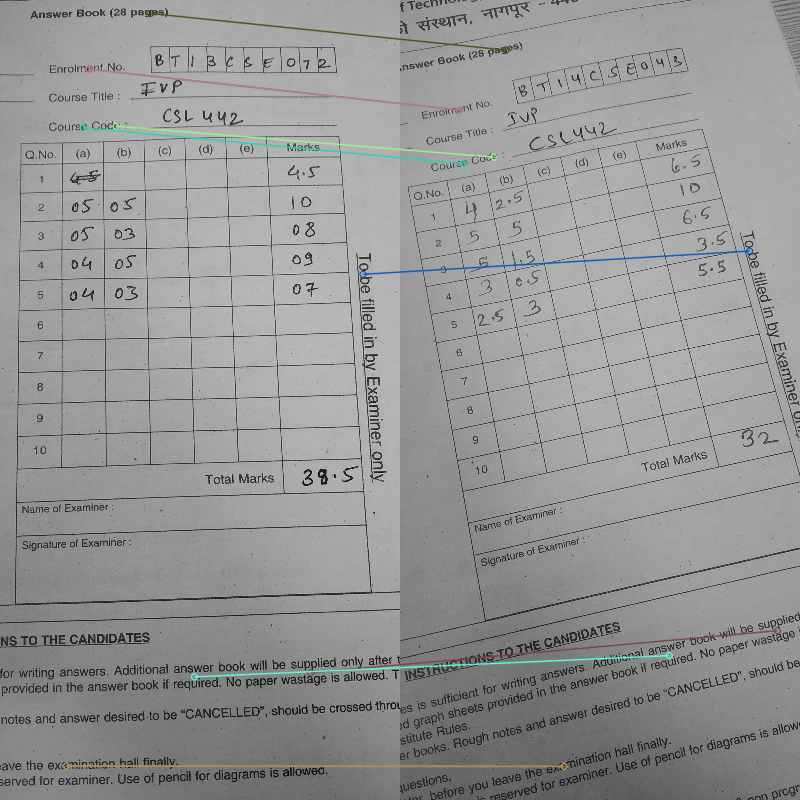 Answer Book (28 pages)
Enrolment No. BT13CSE072
Course Title : IVP
Course Code : CSL 442
Q.No. (a) (b) (c) (d) (e) Marks
1 4.5 4.5
2 05 05 10
3 05 03 08
4 04 05 09
5 04 03 07
6
7
8
9
10
Total Marks 38.5
To be filled in by Examiner only
Name of Examiner :
Signature of Examiner :
NS TO THE CANDIDATES
for writing answers. Additional answer book will be supplied only after
provided in the answer book if required. No paper wastage is allowed.
notes and answer desired to be “CANCELLED”, should be crossed
eave the examination hall finally.
served for examiner. Use of pencil for diagrams is allowed.
संस्थान, नागपूर -
Answer Book (28 pages)
Enrolment No. BT14CSE043
Course Title : IVP
Course Code : CSL442
Q.No. (a) (b) (c) (d) (e) Marks
1 4 2.5 6.5
2 5 5 10
3 5 1.5 6.5
4 3 0.5 3.5
5 2.5 3 5.5
6
7
8
9
10
Total Marks 32
To be filled in by Examiner
Name of Examiner :
Signature of Examiner :
INSTRUCTIONS TO THE CANDIDATES
es is sufficient for writing answers. Additional answer book will be supplied
d graph sheets provided in the answer book if required. No paper wastage
stitute Rules.
er books. Rough notes and answer desired to be “CANCELLED”, should be
questions.
before you leave the examination hall finally.
is reserved for examiner. Use of pencil for diagrams is